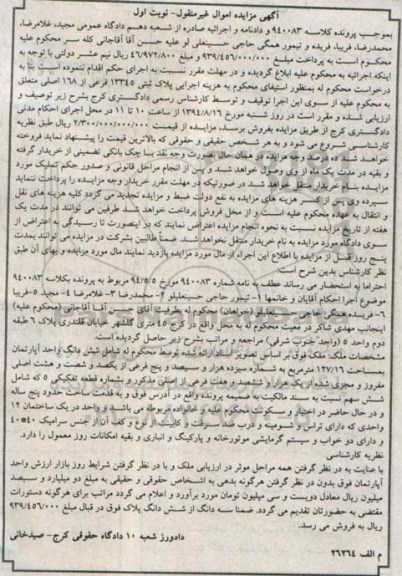 آگهی مزایده اموال غیرمنقول- نوبت اول
بموجب پرونده کلاسه ۹۴۰۰۸۳ و دادنامه و اجرائیه صادره از شعبه دهم دادگاه عمومی مجید، غلامرضا،
محمدرضا، فریبا، فریده و تیمور همگی حاجی حسینعلی لو علیه حسن آقا آقاجانی کله سر محکوم علیه
محکوم است به پرداخت مبلغ ۹۳۹/۴۵۶/۰۰۰/۰۰۰ و مبلغ ۴۶/۹۷۲/۸۰۰ ریال نیم عشر دولتی با توجه به
اینکه اجرائیه به محکوم علیه ابلاغ گردیده و در مهلت مقرر نسبت به اجرای حکم اقدام ننموده است بنا به
درخواست محکوم له بمنظور استیفای محکوم به هزینه اجرایی پلاک ثبتی ۱۳۳۴۵ فرعی از ۱۶۸ اصلی متعلق
به محکوم علیه از سوی این اجرا توقیف و توسط کارشناس رسمی دادگستری کرج بشرح زیر توصیف و
ارزیابی شده و مقرر است در روز شنبه مورخ ۱۳۹۴/۸/۱۶ از ساعت ۱۰ تا ۱۱ در محل اجرای احکام مدنی
دادگستری کرج از طریق مزایده بفروش برسد. مزایده از قیمت ۲/۳۰۰/۰۰۰/۰۰۰/۰۰۰ ریال طبق نظریه
کارشناسی شروع می شود و به هر شخص حقیقی و حقوقی که بالاترین قیمت را پیشنهاد نماید فروخته
خواهد شد ده درصد وجه مزایده در همان حال بصورت وجه نقد یا چک بانکی تضمینی از خریدار گرفته
و بقیه در مدت یک ماه از وی وصول خواهد شد و پس از انجام مراحل قانونی و صدور حکم تملیک مورد
مزایده بنام خریدار منتقل خواهد شد در صورتیکه در مهلت مقرر خریدار وجه مزایده را پرداخت ننماید
سپرده وی پس از کسر هزینه های مزایده به نفع دولت ضبط و مزایده تجدید می گردد کلیه هزینه های نقل
و انتقال به عهده محکوم علیه است و از محل فروش پرداخت خواهد شد طرفین می توانند در مدت یک
هفته از تاریخ مزایده نسبت به نحوه انجام مزایده اعتراض نمایند که در اینصورت تا رسیدگی به اعتراض از
سوی دادگاه مورد مزایده به نام خریدار منتقل نخواهد شد. ضمناً طالبین شرکت در مزایده می توانند بمدت
پنج روز قبل از مزایده با اطلاع این اجراء از مال مورد مزایده بازدید نمایند. مال مورد مزایده و بهای آن طبق
نظر کارشناس بدین شرح است.
احتراما به استحضار می رساند عطف به نامه شماره ۹۴۰۰۸۳ مورخ ۹۴/۵/۵ مربوط به پرونده بکلاسه ۹۴۰۰۸۳
موضوع اجرا احکام آقایان و خانمها ۱- تیمور حاجی حسینعلیلو ۲- محمدرضا ۳- غلامرضا ۴- مجید ۵-فریبا
۶- فریده همگی حاجی حسینعلیلو (خواهان) محکوم له بطرفیت آقای حسن آقا آقاجانی (محکوم علیه)
اینجانب مهدی شاکر در معیت محکوم له به محل واقع در کرج ۴۵ متری گلشهر خیابان قلندری پلاک ۶ طبقه
دوم واحد ۵ (واحد جنوب شرقی) مراجعه و مراتب بشرح زیر حاصل گردیده است.
مشخصات ملک: ملک فوق بر اساس تصویر اسناد ارائه شده توسط محکوم له شامل شش دانگ واحد آپارتمان
بمساحت ۱۲۷/۱۶ مترمربع به شماره سیزده هزار و سیصد و پنج فرعی از یکصد و شصت و هشت اصلی
مفروز و مجزی شده از یک هزار و ششصد و هفت فرعی از اصلی مذکور و بشماره قطعه تفکیکی ۵ که شامل
شش سهم نسبت به سند مالکیت به ضمیمه پرونده واقع در آدرس فوق و به قدمت ساخت حدود پنج ساله
و در حال حاضر در اختیار و سکونت محکوم علیه و خانواده مربوطه می باشد و واحد در یک ساختمان ۱۲
واحدی که دارای تراس و شومینه و درب ضد سرقت و کابینت از نوع و کف آن از جنس سرامیک ۴۰*۴۰
و دارای دو خواب و سیستم گرمایشی موتورخانه و پارکینگ و انباری و بقیه امکانات روز معمول را دارد.
نظریه کارشناسی
با عنایت به در نظر گرفتن همه مراحل موثر در ارزیابی ملک و با در نظر گرفتن شرایط روز بازار ارزش واحد
آپارتمان فوق بدون در نظر گرفتن هرگونه بدهی به اشخاص حقوقی و حقیقی به مبلغ دو میلیارد و سیصد
میلیون ریال معادل دویست و سی میلیون تومان مورد برآورد و اعلام می گردد مراتب برای هرگونه دستورات
مقتضی به حضورتان تقدیم می گردد. ضمنا سه دانگ از شش دانگ پلاک فوق در قبال مبلغ ۹۳۹/۴۵۶/۰۰۰
ریال به فروش می رسد.
دادورز شعبه ۱۰ دادگاه حقوقی کرج- صیدخانی
م الف ۲۶۲۶۴